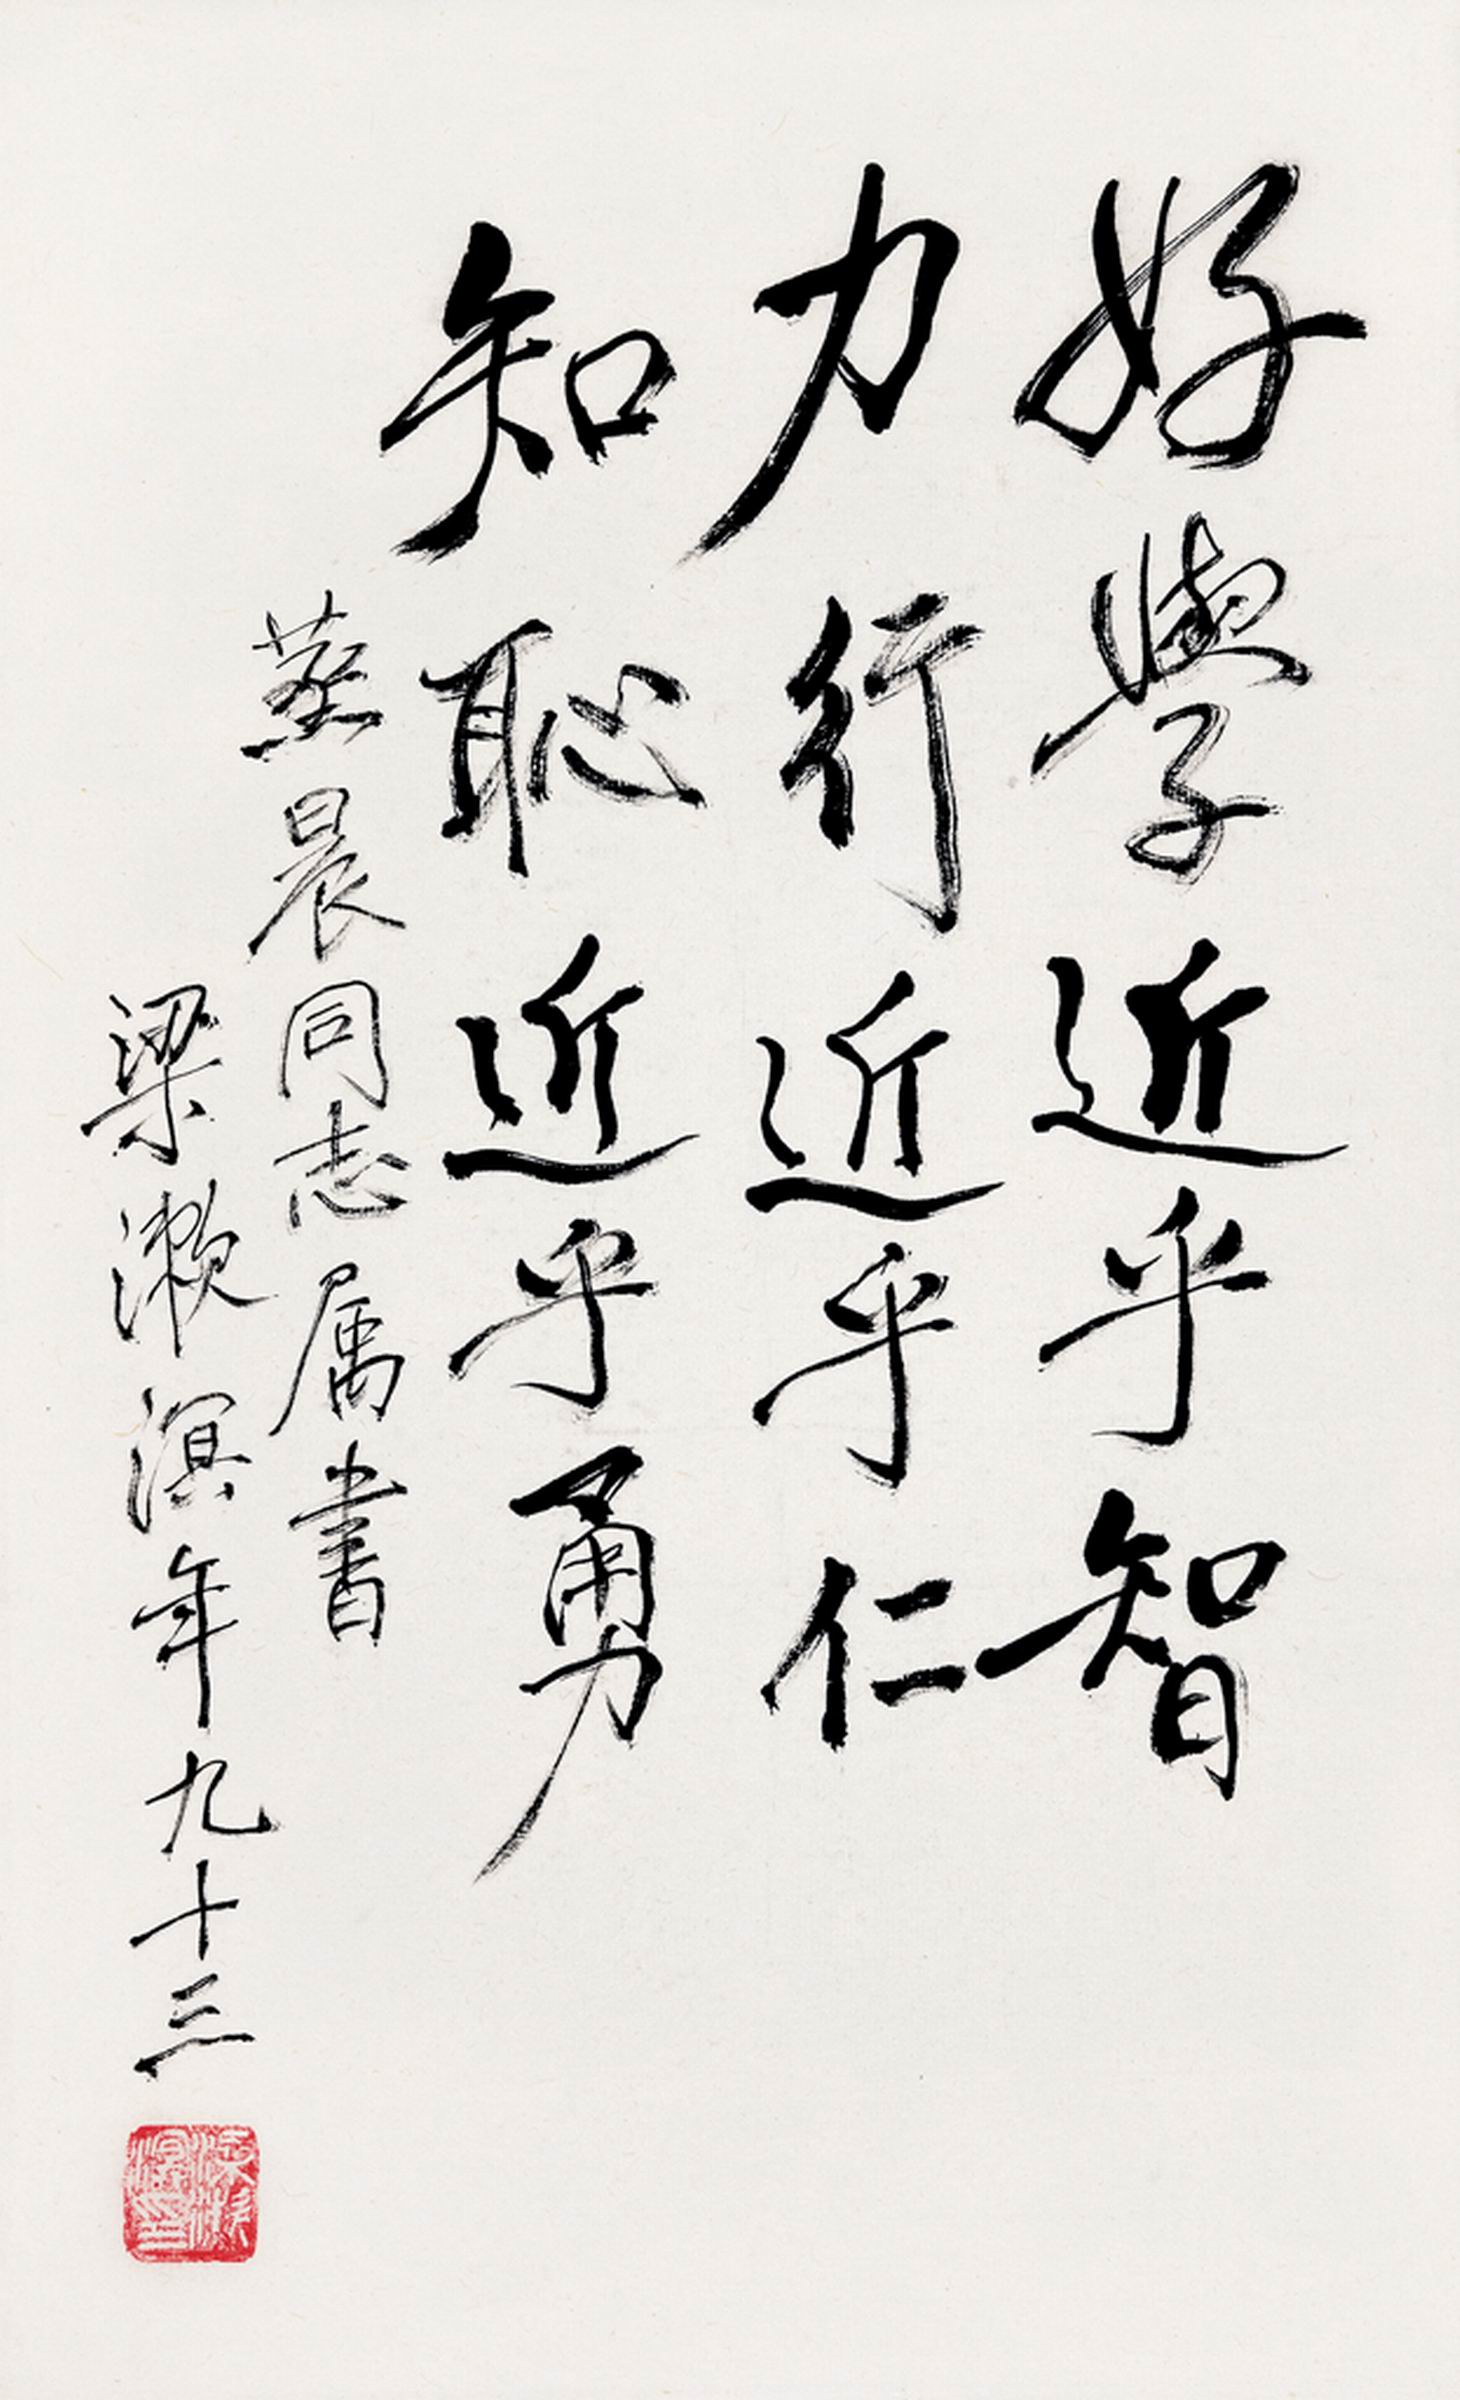 好學近乎智
力行近乎仁
知恥近乎勇
蒸晨同志属書
梁漱溟年九十三
梁漱溟印